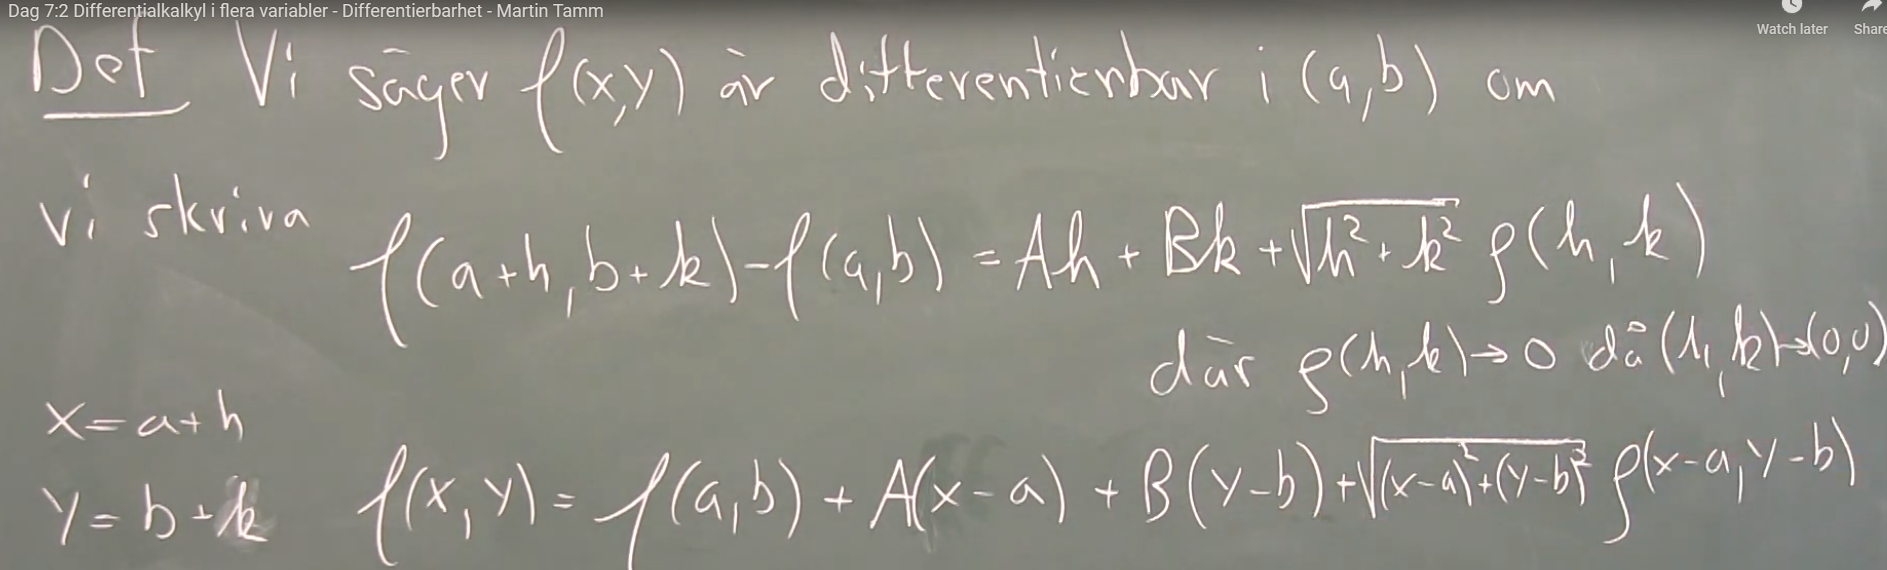 Dag 7:2 Differentialkalkyl i flera variabler - Differentierbarhet - Martin Tamm
Watch later Share
Def Vi säger f(x,y) är differentierbar i (a,b) om
vi skriva
f(a+h,b+k)-f(a,b) = Ah + Bk + √(h²+k²) ρ(h,k)
där ρ(h,k)→0 då (h,k)→(0,0)
x=a+h
y=b+k f(x,y)= f(a,b) + A(x-a) + B(y-b) + √((x-a)²+(y-b)²) ρ(x-a,y-b)